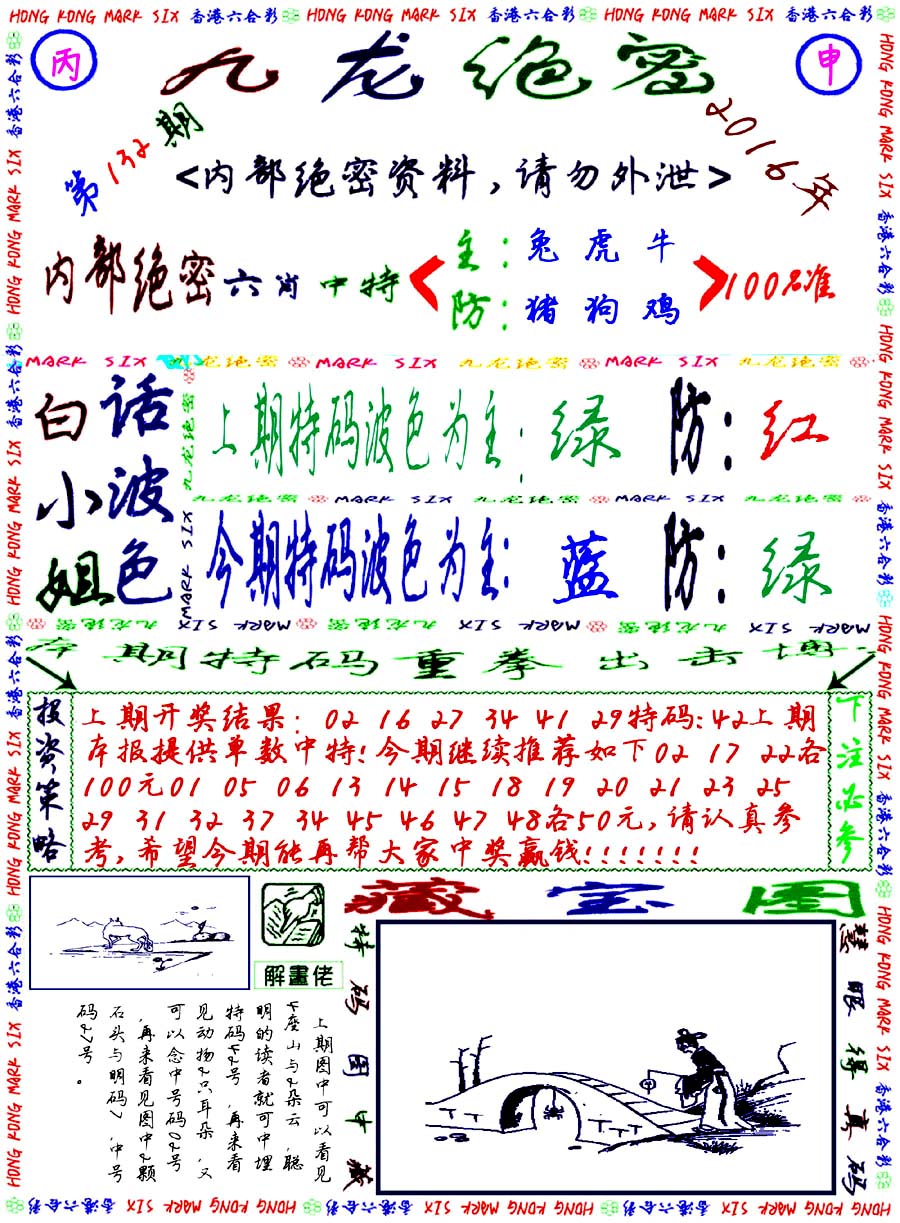 HONG KONG MARK SIX 香港六合彩 HONG KONG MARK SIX 香港六合彩 HONG KONG MARK SIX 香港六合彩
丙
九龙绝密
申
第132期
2016年
<内部绝密资料,请勿外泄>
内部绝密六肖中特
主:兔虎牛
防:猪狗鸡
100%准
MARK SIX 九龙绝密 MARK SIX 九龙绝密 MARK SIX 九龙绝密
白话
小波
姐色
上期特码波色为主:绿 防:红
九龙绝密 MARK SIX 九龙绝密 MARK SIX 九龙绝密
今期特码波色为主:蓝 防:绿
MARK SIX 九龙绝密 MARK SIX 九龙绝密 MARK SIX 九龙绝密
本期特码重拳出击博
投资策略
上期开奖结果:02 16 27 34 41 29特码:42上期
本报提供单数中特!今期继续推荐如下02 17 22各
100元01 05 06 13 14 15 18 19 20 21 23 25
29 31 32 37 34 45 46 47 48各50元,请认真参
考,希望今期能再帮大家中奖赢钱!!!!!!!
下注必参
解畫佬
藏宝图
特码图中藏
慧眼得真码
上期图中可以看见
4座山与2朵云,聪
明的读者就可中埋
特码42号,再来看
见动物2只耳朵,又
可以念中号码02号
,再来看见图中2颗
石头与明码7,中号
码27号。
HONG KONG MARK SIX 香港六合彩 HONG KONG MARK SIX 香港六合彩 HONG KONG MARK SIX 香港六合彩